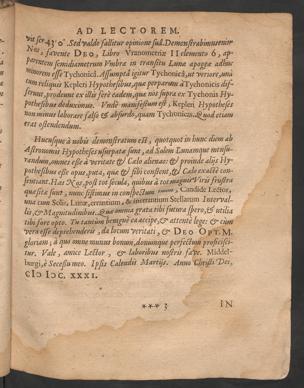 AD LECTOREM.
vit ser 43′0″. Sed valde fallitur opinione sua. Demonstrabimus enim
Nos, favente DEO, Libro Uranometriæ II elemento 6, ap-
parentem semidiametrum Umbræ in transitu Lunæ apogææ adhuc
minorem esse Tychonicâ. Assumptâ igitur Tychonicâ, ut veriore, unà
cum reliquis Kepleri Hypothesibus, quæ parum à Tychonicis dif-
ferunt, prodeunt ex illis ferè eadem, quæ nos supra ex Tychonis Hy-
pothesibus deduximus. Unde manifestum est, Kepleri Hypotheses
non minus laborare falso & absurdo, quàm Tychonicas. Quod etiam
erat ostendendum.
Hucusque à nobis demonstratum est, quotquot in hunc diem ab
Astronomis Hypotheses usurpatæ sunt, ad Solem Lunamque mensu-
randum, omnes esse à veritate & Cælo alienas: & proinde aliis Hy-
pothesibus esse opus, puta, quæ & sibi constent, & Cælo exactè con-
sentiant. Has Nos, post tot sæcula, quibus à tot magnis Viris frustra
quæsitæ sunt, nunc sistimus in conspectum tuum, Candide Lector,
unà cum Solis, Lunæ, errantium, & inerrantium Stellarum Interval-
lis, & Magnitudinibus. Quæ omnia grata tibi futura spero, & utili-
tibi fore opto. Tu tantùm benignè ea accipe, & attentè lege: & cùm
vera esse deprehenderis, da locum veritati, & DEO OPT. M.
gloriam; à quo omne munus bonum, donumque perfectum proficisci-
tur. Vale, amice Lector, & laboribus nostris fave. Middel-
burgi, è Secessu meo. Ipsis Calendis Martijs. Anno Christi Dei,
CIↃ IↃC. XXXI.
*** 3
IN